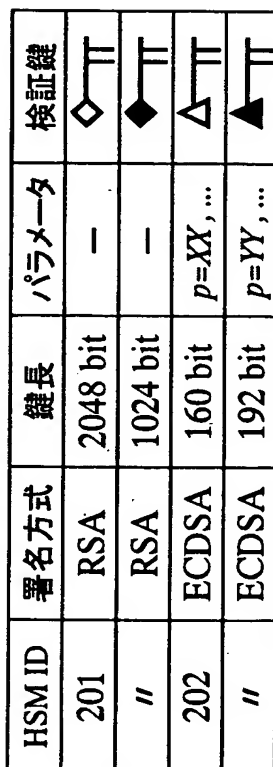 HSM ID 署名方式 鍵長 パラメータ 検証鍵
201 RSA 2048 bit —
〃 RSA 1024 bit —
202 ECDSA 160 bit p=XX , ...
〃 ECDSA 192 bit p=YY , ...